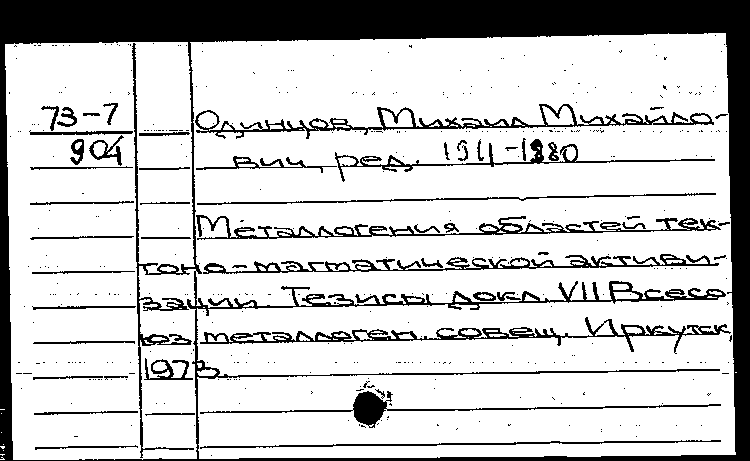 73-7
904
Одинцов, Михаил Михайло-
вич, ред. 1911-1980
Металлогения областей тек-
тоно-магматической активи-
зации. Тезисы докл. VII Всесо-
юз. металлоген. совещ. Иркутск,
1973.